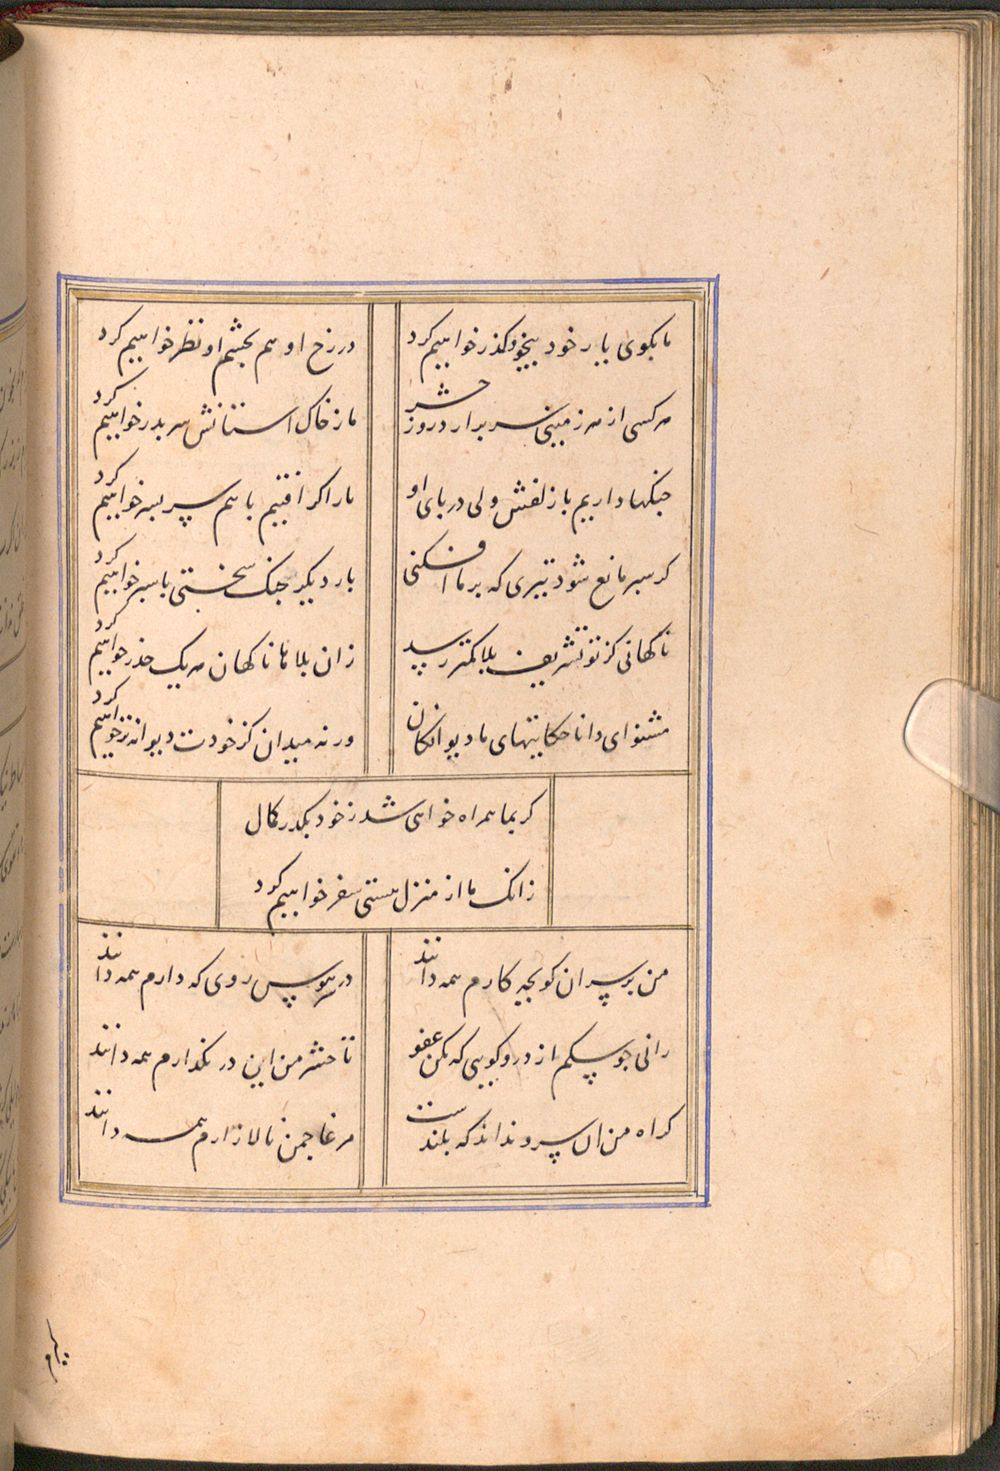 ما بکوی یار خود بیخود کذر خواهیم کرد
در رخ او هم بچشم او نظر خواهیم کرد
هر کسی از سر زمینی سر برارد روز حشر
ما ز خاک استانش سر بدر خواهیم کرد
جنکها داریم با زلفش ولی در پای او
ما را کر افتیم با هم سر بسر خواهیم کرد
کر سپر مانع شود تیری که بر ما افکنی
بار دیکر جنک سختی با سپر خواهیم کرد
ناکهانی کز تو تشریف بلا کمتر رسد
زان بلاها ناکهان هر یک حذر خواهیم کرد
مشنو ای دانا حکایتهای ما دیوانکان
ورنه میدان کز خودت دیوانه تر خواهیم کرد
کر بما همراه خواهی شد ز خود بکذر کمال
زانک ما از منزل هستی سفر خواهیم کرد
من بر سر ان کو بچه کارم همه دانند
در سر هوس روی که دارم همه دانند
رانی جو سکم از در و کویی که بکن عفو
تا حشر من این در نکذارم همه دانند
کر اه من ان سرو نداند که بلندست
مرغا جمن نالا زارم همه دانند